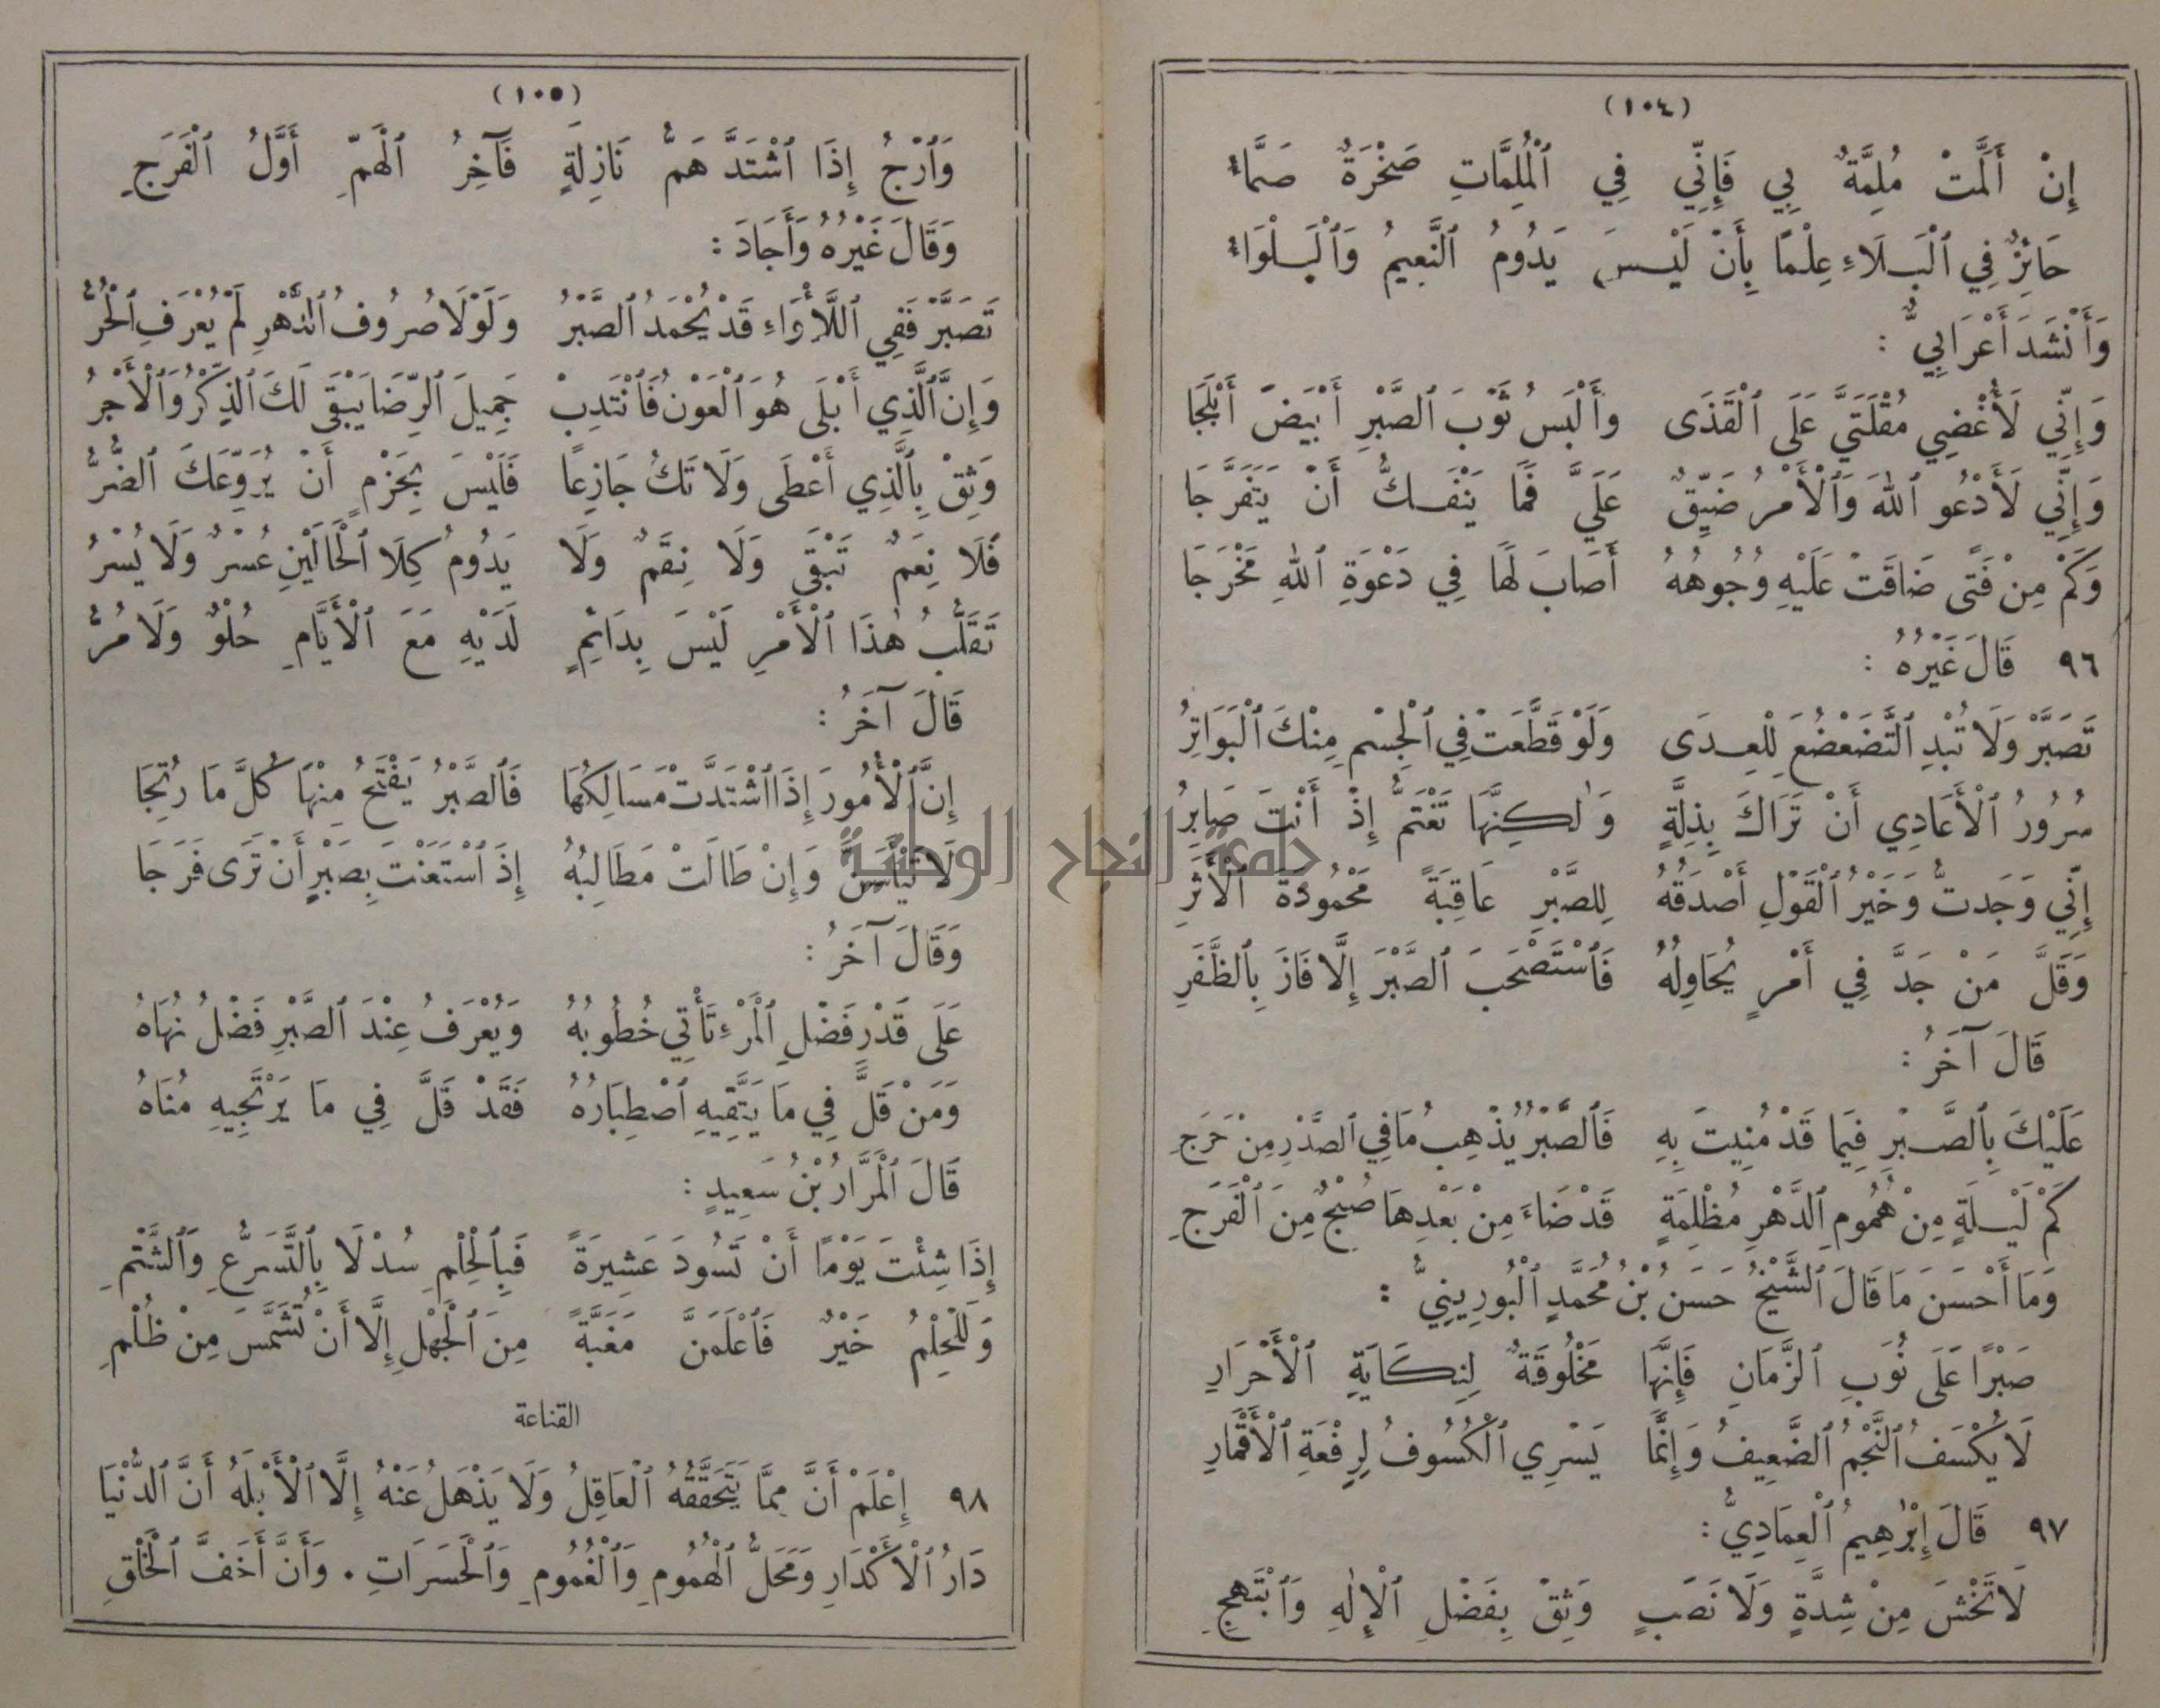 (١٠٤)
إِنْ أَلَمَّتْ مُلِمَّةٌ بِي فَإِنِّي فِي ٱلْمُلِمَّاتِ صَخْرَةٌ صَمَّاءُ
حَائِزٌ فِي ٱلْبَلَاءِ عِلْمًا بِأَنْ لَيْسَ يَدُومُ ٱلنَّعِيمُ وَٱلْبَلْوَاءُ
وَأَنْشَدَ أَعْرَابِيٌّ :
وَإِنِّي لَأُغْضِي مُقْلَتَيَّ عَلَى ٱلْقَذَى وأَلْبَسُ ثَوْبَ ٱلصَّبْرِ أَبْيَضَ أَبْلَجَا
وَإِنِّي لَأَدْعُو ٱللهَ وَٱلْأَمْرُ ضَيِّقٌ عَلَيَّ فَمَا يَنْفَكُّ أَنْ يَتَفَرَّجَا
وَكَمْ مِنْ فَتًى ضَاقَتْ عَلَيْهِ وُجُوهُهُ أَصَابَ لَهَا فِي دَعْوَةِ ٱللهِ مَخْرَجَا
٩٦ قَالَ غَيْرُهُ :
تَصَبَّرْ وَلَا تُبْدِ ٱلتَّضَعْضُعَ لِلْعِدَى وَلَوْ قَطَّعَتْ فِي ٱلْجِسْمِ مِنْكَ ٱلْبَوَاتِرُ
سُرُورُ ٱلْأَعَادِي أَنْ تَرَاكَ بِذِلَّةٍ وَلٰكِنَّهَا تَغْتَمُّ إِذْ أَنْتَ صَابِرُ
إِنِّي وَجَدتُّ وَخَيْرُ ٱلْقَوْلِ أَصْدَقُهُ لِلصَّبْرِ عَاقِبَةً مَحْمُودَةَ ٱلْأَثَرِ
وَقَلَّ مَنْ جَدَّ فِي أَمْرٍ يُحَاوِلُهُ فَٱسْتَصْحَبَ ٱلصَّبْرَ إِلَّا فَازَ بِٱلظَّفَرِ
قَالَ آخَرُ :
عَلَيْكَ بِٱلصَّبْرِ فِيمَا قَدْ مُنِيتَ بِهِ فَٱلصَّبْرُ يُذْهِبُ مَا فِي ٱلصَّدْرِ مِنْ حَرَجِ
كَمْ لَيْلَةٍ مِنْ هُمُومِ ٱلدَّهْرِ مُظْلِمَةٍ قَدْ ضَاءَ مِنْ بَعْدِهَا صُبْحٌ مِنَ ٱلْفَرَجِ
وَمَا أَحْسَنَ مَا قَالَ ٱلشَّيْخُ حَسَنُ بْنُ مُحَمَّدٍ ٱلْبُورِينِيُّ :
صَبْرًا عَلَى نُوَبِ ٱلزَّمَانِ فَإِنَّهَا مَخْلُوقَةٌ لِنِكَايَةِ ٱلْأَحْرَارِ
لَا يُكْسَفُ ٱلنَّجْمُ ٱلضَّعِيفُ وَإِنَّمَا يَسْرِي ٱلْكُسُوفُ لِرِفْعَةِ ٱلْأَقْمَارِ
٩٧ قَالَ إِبْرٰهِيمُ ٱلْعِمَادِيُّ :
لَا تَخْشَ مِنْ شِدَّةٍ وَلَا نَصَبٍ وَثِقْ بِفَضْلِ ٱلْإِلٰهِ وَٱبْتَهِجِ
(١٠٥)
وَٱرْجُ إِذَا ٱشْتَدَّ هَمُّ نَازِلَةٍ فَآخِرُ ٱلْهَمِّ أَوَّلُ ٱلْفَرَجِ
وَقَالَ غَيْرُهُ وَأَجَادَ :
تَصَبَّرْ فَفِي ٱللَّأْوَاءِ قَدْ يُحْمَدُ ٱلصَّبْرُ وَلَوْلَا صُرُوفُ ٱلدَّهْرِ لَمْ يُعْرَفِ ٱلْحُرُّ
وَإِنَّ ٱلَّذِي أَبْلَى هُوَ ٱلْعَوْنُ فَٱنْتَدِبْ جَمِيلَ ٱلرِّضَا يَبْقَى لَكَ ٱلذِّكْرُ وَٱلْأَجْرُ
وَثِقْ بِٱلَّذِي أَعْطَى وَلَا تَكُ جَازِعًا فَلَيْسَ بِحَزْمٍ أَنْ يُرَوِّعَكَ ٱلضُّرُّ
فَلَا نِعَمٌ تَبْقَى وَلَا نِقَمٌ وَلَا يَدُومُ كِلَا ٱلْحَالَيْنِ عُسْرٌ وَلَا يُسْرُ
تَقَلُّبُ هٰذَا ٱلْأَمْرِ لَيْسَ بِدَائِمٍ لَدَيْهِ مَعَ ٱلْأَيَّامِ حُلْوٌ وَلَا مُرُّ
قَالَ آخَرُ :
إِنَّ ٱلْأُمُورَ إِذَا ٱشْتَدَّتْ مَسَالِكُهَا فَٱلصَّبْرُ يَفْتَحُ مِنْهَا كُلَّ مَا رُتِجَا
لَا تَيْأَسَنَّ وَإِنْ طَالَتْ مَطَالِبُهُ إِذَ ٱسْتَعَنْتَ بِصَبْرٍ أَنْ تَرَى فَرَجَا
وَقَالَ آخَرُ :
عَلَى قَدْرِ فَضْلِ ٱلْمَرْءِ تَأْتِي خُطُوبُهُ وَيُعْرَفُ عِنْدَ ٱلصَّبْرِ فَضْلُ نُهَاهُ
وَمَنْ قَلَّ فِي مَا يَتَّقِيهِ ٱصْطِبَارُهُ فَقَدْ قَلَّ فِي مَا يَرْتَجِيهِ مُنَاهُ
قَالَ ٱلْمَرَّارُ بْنُ سَعِيدٍ :
إِذَا شِئْتَ يَوْمًا أَنْ تَسُودَ عَشِيرَةً فَبِٱلْحِلْمِ سُدْ لَا بِٱلتَّسَرُّعِ وَٱلشَّتْمِ
وَلَلْحِلْمُ خَيْرٌ فَٱعْلَمَنَّ مَغَبَّةً مِنَ ٱلْجَهْلِ إِلَّا أَنْ تُشَمَّسَ مِنْ ظُلْمِ
القناعة
٩٨ إِعْلَمْ أَنَّ مِمَّا يَتَحَقَّقُهُ ٱلْعَاقِلُ وَلَا يَذْهَلُ عَنْهُ إِلَّا ٱلْأَبْلَهُ أَنَّ ٱلدُّنْيَا
دَارُ ٱلْأَكْدَارِ وَمَحَلُّ ٱلْهُمُومِ وَٱلْغُمُومِ وَٱلْحَسَرَاتِ . وَأَنَّ أَخَفَّ ٱلْخَلْقِ
جامعة النجاح الوطنية